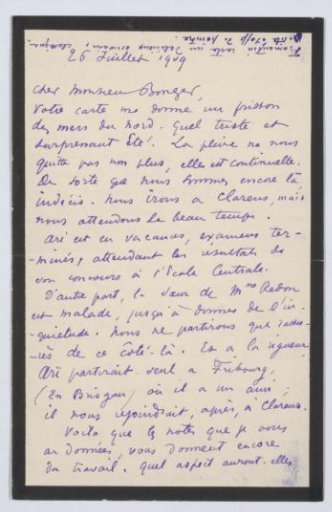 26 Juillet 1909
Cher Monsieur Bonger,
Votre carte me donne un frisson
des mers du nord. Quel triste et
surprenant Été. La pluie ne nous
quitte pas non plus, elle est continuelle.
De sorte que nous sommes encore là
indécis. Nous irons à Clarens, mais
nous attendons le beau temps.
Arï est en vacances, examens ter-
-minés, attendant les résultats de
son concours à l'École Centrale.
D'autre part, la sœur de Mme Redon
est malade, jusqu'à donner de l'in-
quiétude. Nous ne partirons que rassu-
-rés de ce côté-là. Et à la rigueur
Arï partirait seul à Fribourg,
(En Brisgau) où il a un ami;
il nous rejoindrait, après, à Clarens.
Voilà que les notes que je vous
ai données, vous donnent encore
du travail. Quel aspect auront-elles
Fromentin reste un délicieux écrivain,
de peintre